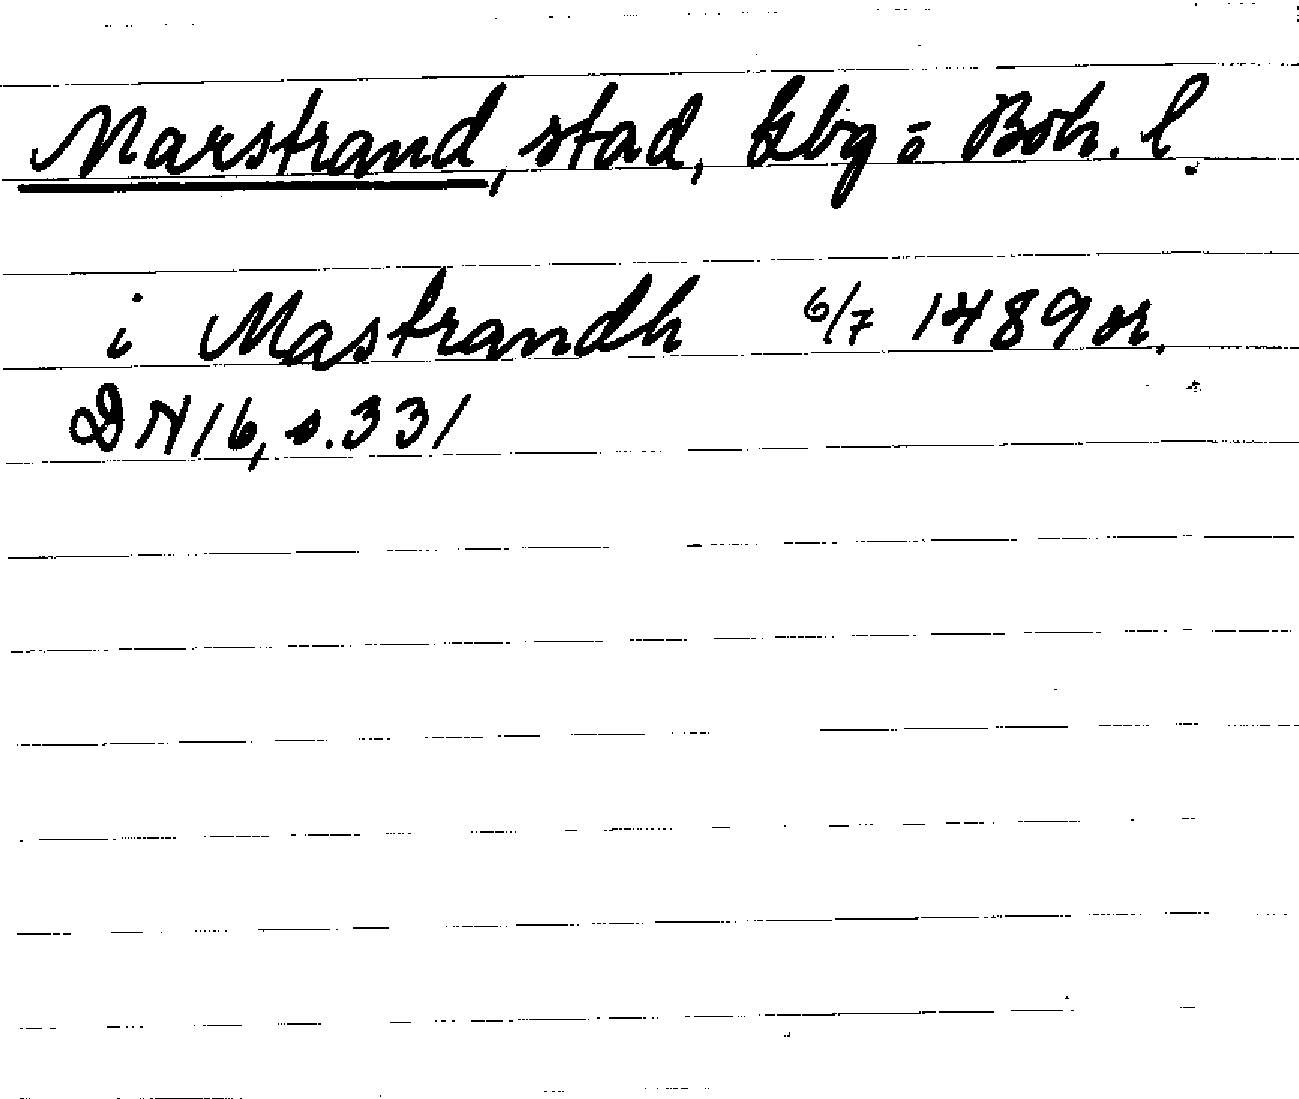 Marstrand, stad, Gbg o Boh. l.
i Mastrandh 6/7 1489 or.
DN 16, s. 331